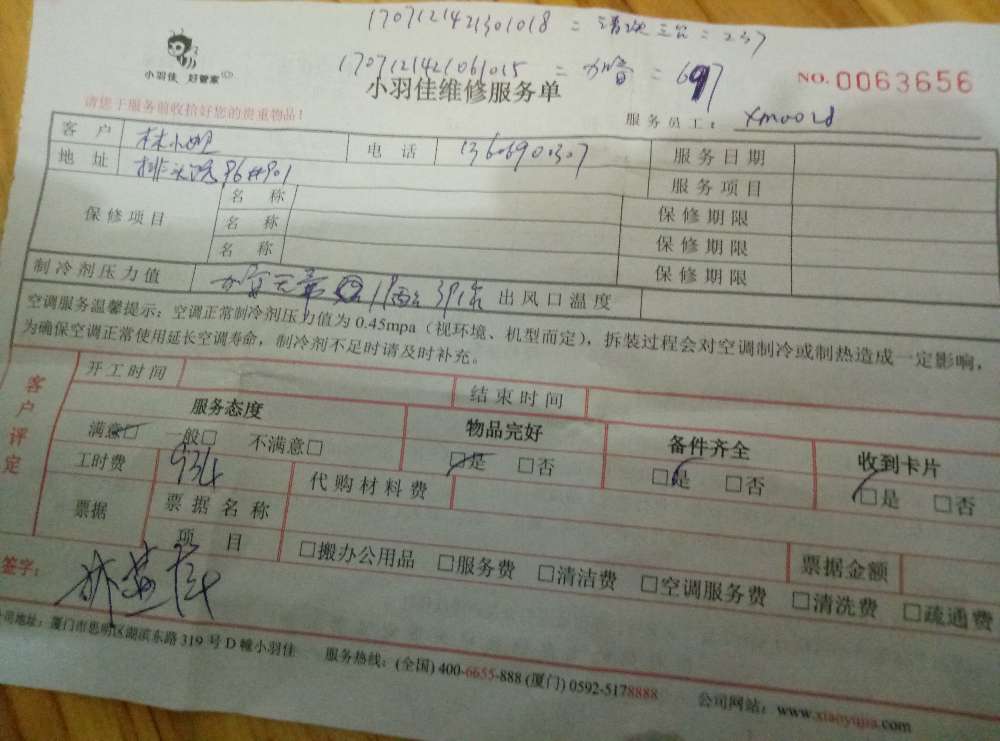 1707121421301018 = 清洗三台 = 237
1707121421061015 = 加管 = 697
小羽佳 好管家
小羽佳维修服务单
NO. 0063656
请您于服务前收拾好您的贵重物品!
服务员工: xm001d
客户 林小姐 电话 服务日期
地址 排头路96#901 服务项目
保修项目 名称 保修期限
名称 保修期限
名称 保修期限
制冷剂压力值 出风口温度
空调服务温馨提示: 空调正常制冷剂压力值为 0.45mpa (视环境、机型而定), 拆装过程会对空调制冷或制热造成一定影响,
为确保空调正常使用延长空调寿命, 制冷剂不足时请及时补充。
客户评定
开工时间 结束时间
服务态度 物品完好 备件齐全 收到卡片
满意□ 一般□ 不满意□ □是 □否 □是 □否 □是 □否
工时费 934 代购材料费
票据 票据名称
项目 □搬办公用品 □服务费 □清洁费 □空调服务费 □清洗费 □疏通费
票据金额
签字:
公司地址: 厦门市思明区湖滨东路 319 号 D 幢小羽佳 服务热线: (全国) 400-6655-888 (厦门) 0592-5178888 公司网站: www.xiaoyujia.com